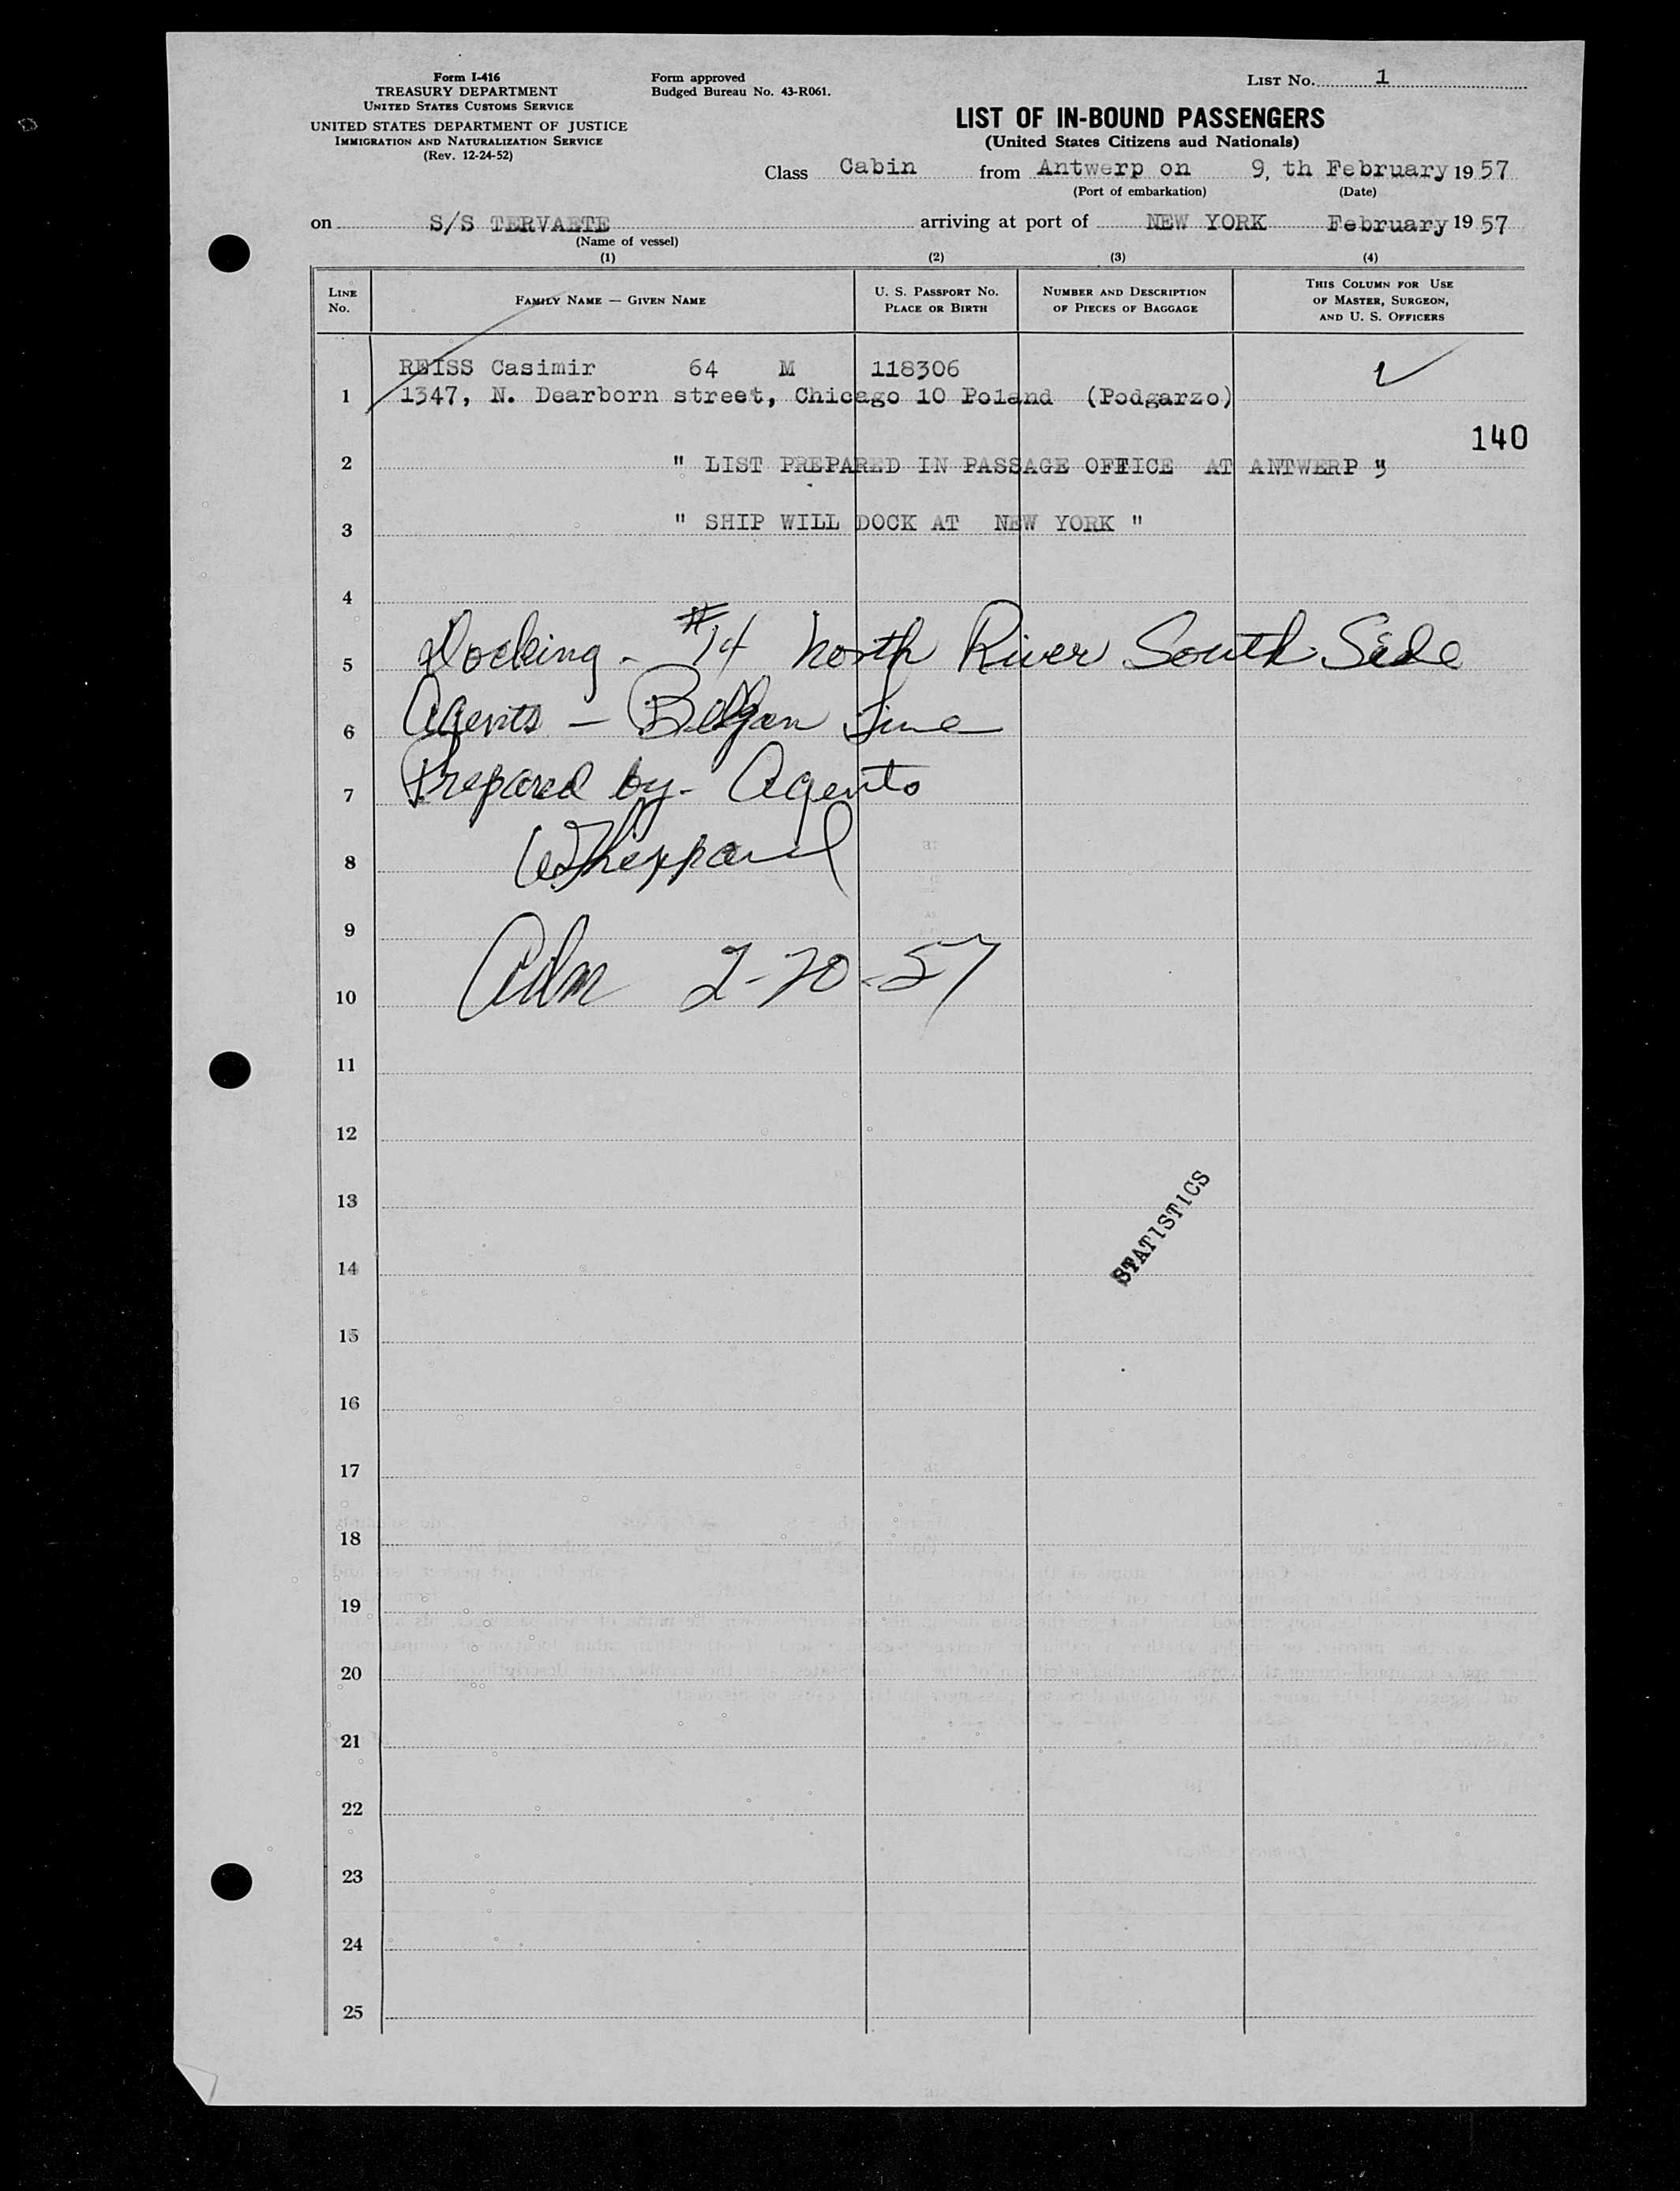 Form I-416
TREASURY DEPARTMENT
UNITED STATES CUSTOMS SERVICE
UNITED STATES DEPARTMENT OF JUSTICE
IMMIGRATION AND NATURALIZATION SERVICE
(Rev. 12-24-52)
Form approved
Budged Bureau No. 43-R061.
LIST No. 1
LIST OF IN-BOUND PASSENGERS
(United States Citizens aud Nationals)
Class Cabin from Antwerp on 9, th February 19 57
(Port of embarkation) (Date)
on S/S TERVAETE arriving at port of NEW YORK February 19 57
(Name of vessel)
(1) (2) (3) (4)
LINE No. FAMILY NAME — GIVEN NAME U. S. PASSPORT No. PLACE OR BIRTH NUMBER AND DESCRIPTION OF PIECES OF BAGGAGE THIS COLUMN FOR USE OF MASTER, SURGEON, AND U. S. OFFICERS
REISS Casimir 64 M 118306
1 1347, N. Dearborn street, Chicago 10 Poland (Podgarzo)
140
2 " LIST PREPARED IN PASSAGE OFFICE AT ANTWERP "
3 " SHIP WILL DOCK AT NEW YORK "
4
5 Docking - #14 North River South Side
6 Agents — Belgan Line
7 Prepared by - Agents
8
9
10 Adm 2-20-57
11
12
13
STATISTICS
14
15
16
17
18
19
20
21
22
23
24
25